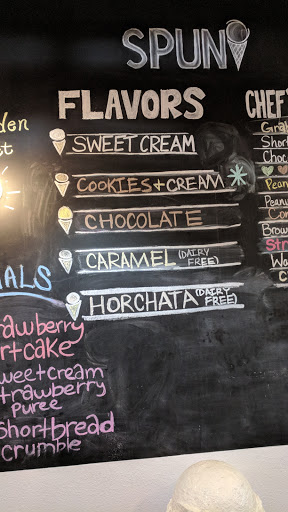 SPUN
FLAVORS
SWEET CREAM
COOKIES + CREAM *
CHOCOLATE
CARAMEL (DAIRY FREE)
HORCHATA (DAIRY FREE)
CHEF'
Short
Choc
Pean
Peanu
Brow
Str
den
st
ALS
rawberry
rtcake
weetcream
trawberry
puree
shortbread
crumble